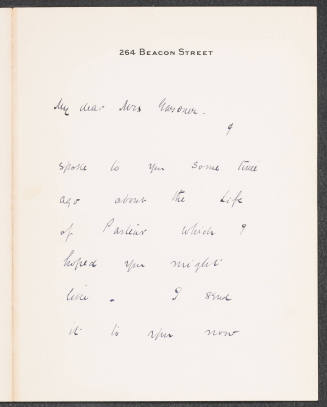 264 BEACON STREET
My dear Mrs Gardner.
I
spoke to you some time
ago about the Life
of Pasteur which I
hoped you might
like. I send
it to you now